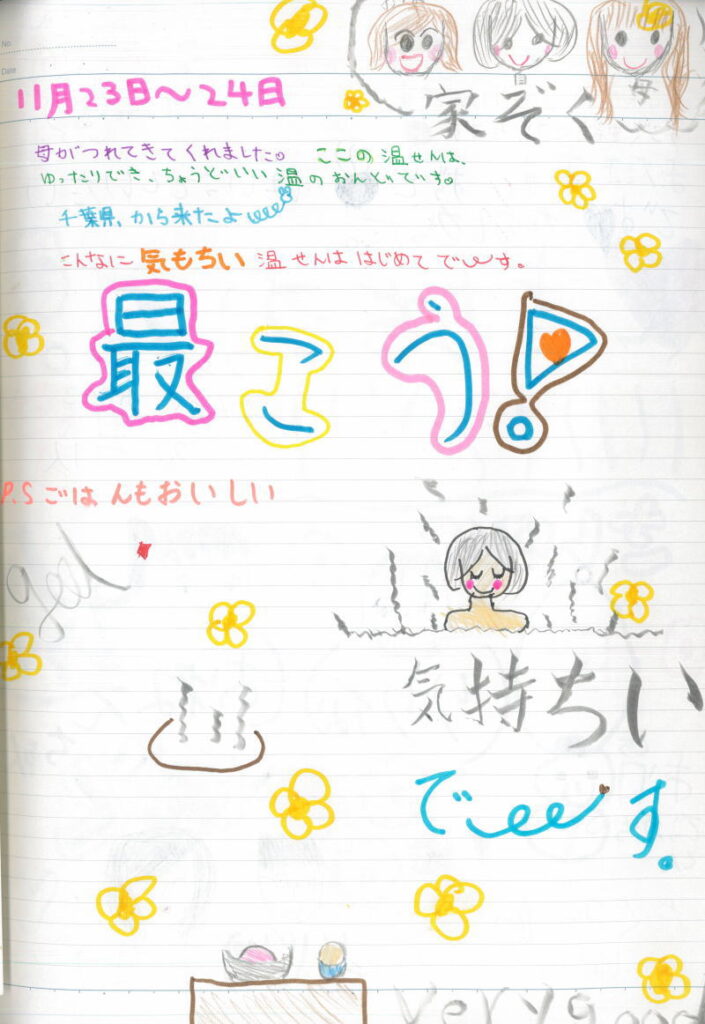 No.
Date
11月23日～24日
母
家ぞく
母がつれてきてくれました。 ここの温せんは、
ゆったりでき、ちょうどいい温のおんどです。
千葉県、から来たよ
こんなに気もちい温せんははじめてで〜す。
最こう!
P.Sごはんもおいしい
気持ちい
で〜す。
very good